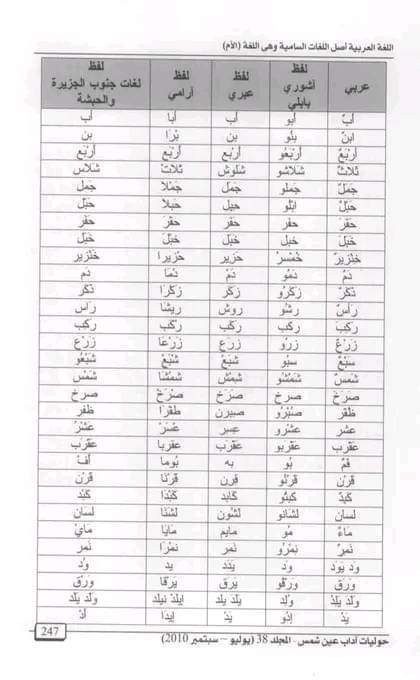 اللغة العربية أصل اللغات السامية وهى اللغة (الأم)
عربي | لفظ آشوري بابلي | لفظ عبري | لفظ أرامي | لفظ لغات جنوب الجزيرة والحبشة
أبٌ | أبو | أب | أبا | أب
ابنٌ | بنُو | بن | بْرَا | بن
أربَعٌ | أرْبَعُو | أربَع | أربَع | أرْبَع
ثلاثٌ | شلاشو | شلوش | ثلاث | شلاس
جَمَلٌ | جَمَلو | جَمل | جَمْلا | جَمل
حبْلٌ | ابْلو | حبل | حَبلا | حَبْل
حَفَرَ | حفر | حفر | حَفَرَ | حَفَر
خَبَلَ | خبل | خبل | خَبَل | خَبَل
خنْزيرٌ | خُمْسرُ | حزير | حزيرا | خنْزير
دمٌ | دَمُو | دَمْ | دَمَا | دَم
ذَكَرٌ | زكَرُو | زَكر | زكرَا | ذَكَر
رَأسٌ | رشُو | روش | ريشَا | رَاس
ركب | ركَب | ركَب | رَكَب | ركب
زرعٌ | زرُو | زرع | زَرْعَا | زَرْع
سَبْعٌ | سبُو | شبَعْ | شْبَعْ | شَبْعُو
شَمسٌ | شَمْشُو | شمْش | شمْشَا | شَمْس
صَرَخَ | صرخ | صَرَخ | صَرَخْ | صَرَخ
ظفْرٌ | صُبْرُو | صبرن | طفْرَا | ظفر
عشر | عشْرو | عسر | عُسَرْ | عَشْر
عقرب | عقربو | عقرب | عقربا | عقْرَب
فمٌ | بُو | به | بُوما | أفْ
قَرْنٌ | قرْنُو | قرن | قَرْنَا | قَرْن
كَبدٌ | كَبتُو | كَابد | كَبْدَا | كَبْد
لسان | لشَانو | لشُون | لشَنَا | لسَان
مَاءٌ | مُو | مايم | مَايَا | مَايْ
نَمر | نمْرُو | نَمر | نمْرَا | نَمر
ود يود | وَد | يَدَد | يد | وُد
وَرَق | ورقو | يَرَق | يَرْقَا | وَرَق
ولَدَ يلدُ | ولَد | يلَد | ايلدْ نيلد | وَلَد يلَد
يَدٌ | إدُو | يَد | إيدَا | أدْ
حوليات آداب عين شمس - المجلد 38 (يوليو – سبتمبر 2010)
247